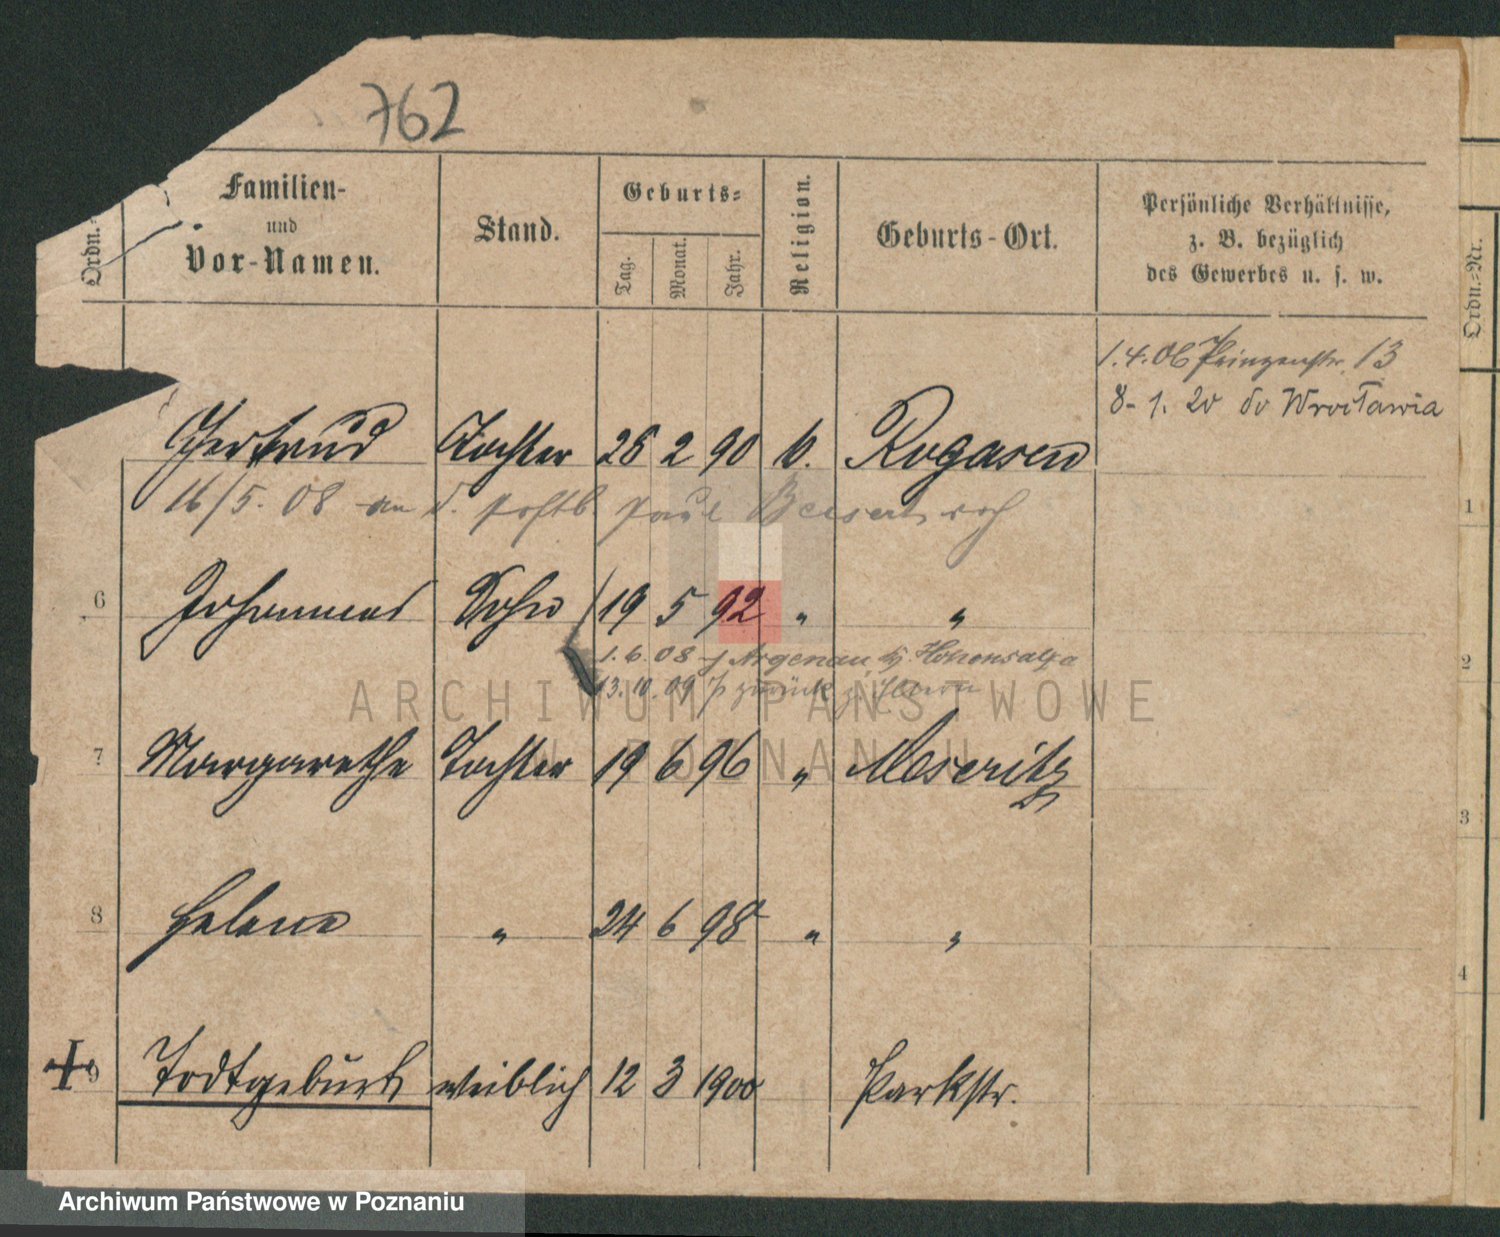 762
Ordn.-
Familien-
und
Vor-Namen.
Stand.
Geburts-
Tag.
Monat.
Jahr.
Religion.
Geburts-Ort.
Persönliche Verhältnisse,
z. B. bezüglich
des Gewerbes u. s. w.
Ordn.-Nr.
1.4.06 Prinzenstr. 13
8-1. 20 do Wrocławia
Gertrud Tochter 26 2 90 Rogasen
16/5. 08 an d. Paul
6 Johannes Sohn 19 5 92 " "
1.6.08 Argenau Hohensalza
13.10.09 zurück z. Eltern
7 Margarethe Tochter 19 6 96 " Meseritz
8 Helene " 24 6 98 " "
9 Todtgeburt weiblich 12 3 1900 Parkstr.
1
2
3
4
ARCHIWUM PAŃSTWOWE
W POZNANIU
Archiwum Państwowe w Poznaniu